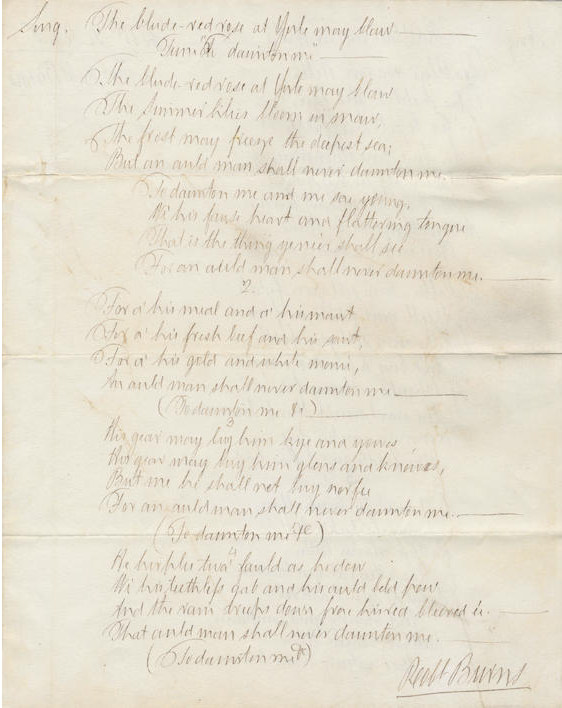 Song. The blude-red rose at Yule may blaw
Tune "To daunton me"
The blude-red rose at Yule may blaw
The Summer lilies bloom in snaw,
The frost may freeze the deepest sea;
But an auld man shall never daunton me.
To daunton me and me sae young,
Wi his fause heart and flattering tongue
That is the thing ye ne'er shall see
For an auld man shall never daunton me.
2
For a' his meal and a' his maut
For a' his fresh beef and his saut,
For a' his gold and white monie,
An auld man shall never daunton me
(To daunton me &c)
3
His gear may buy him kye and yowes
His gear may buy him glens and knowes,
But me he shall not buy nor fee
For an auld man shall never daunton me.
(To daunton me &c)
4
He hirples twa fauld as he dow
Wi his teethless gab and his auld beld pow
And the rain dreeps down frae his red bleered e'e.
That auld man shall never daunton me.
(To daunton me &c)
Robt Burns